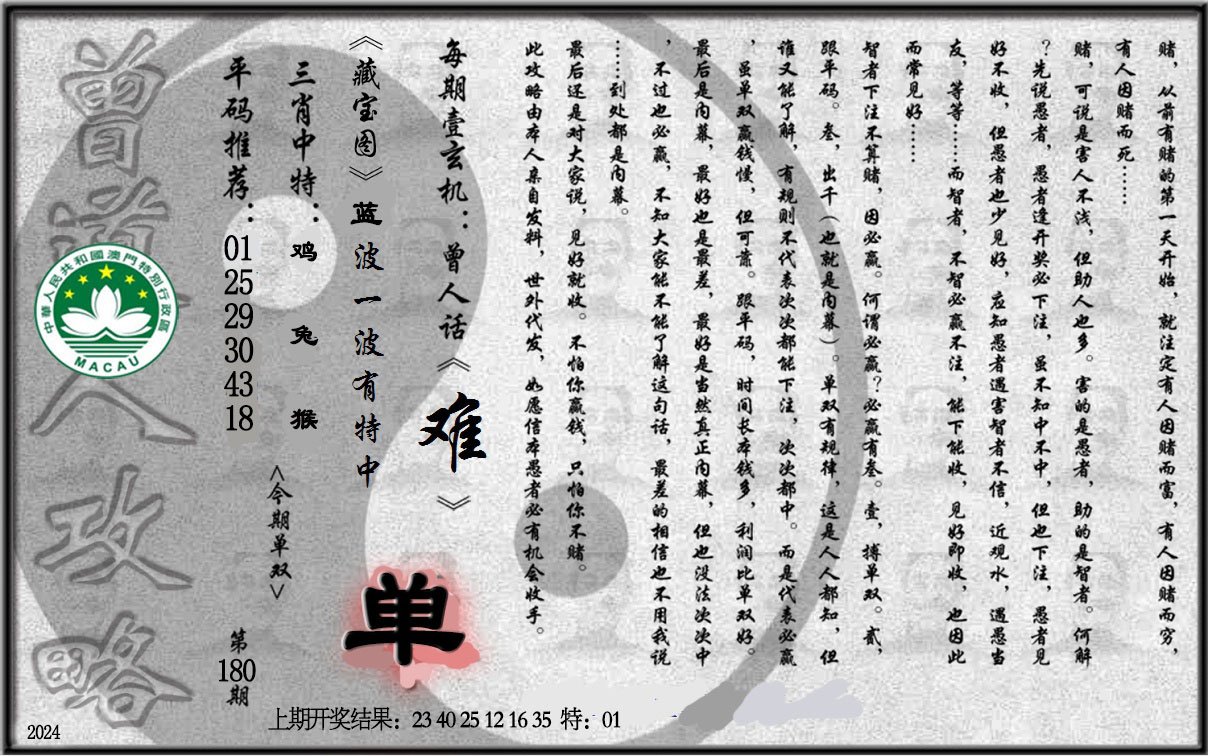 赌，从前有赌的第一天开始，就注定有人因赌而富，有人因赌而穷，
有人因赌而死……
赌，可说是害人不浅，但助人也多。害的是愚者，助的是智者。何解
？先说愚者，愚者逢开奖必下注，虽不知中不中，但也下注，愚者见
好不收，但愚者也少见好，应知愚者遇害智者不信，近观水，遇愚当
友，等等……而智者，不智必赢不注，能下能收，见好即收，也因此
而常见好……
智者下注不算赌，因必赢。何谓必赢？必赢有叁。壹，搏单双。贰，
跟平码。叁，出千（也就是内幕）。单双有规律，这是人人都知，但
谁又能了解，有规则不代表次次都能下注，次次都中。而是代表必赢
，虽单双赢钱慢，但可靠。跟平码，时间长本钱多，利润比单双好。
最后是内幕，最好也是最差，最好是当然真正内幕，但也没法次次中
，不过也必赢，不知大家能不能了解这句话，最差的相信也不用我说
……到处都是内幕。
最后还是对大家说，见好就收。不怕你赢钱，只怕你不赌。
此攻略由本人亲自发料，世外代发，如愿信本愚者必有机会收手。
每期壹玄机：曾人话《难》
《藏宝图》蓝波一波有特中
单
三肖中特：鸡 兔 猴
<今期单双>
平码推荐：01 25 29 30 43 18
第180期
曾道人攻略
中華人民共和國澳門特別行政區
MACAU
上期开奖结果：23 40 25 12 16 35 特：01
2024